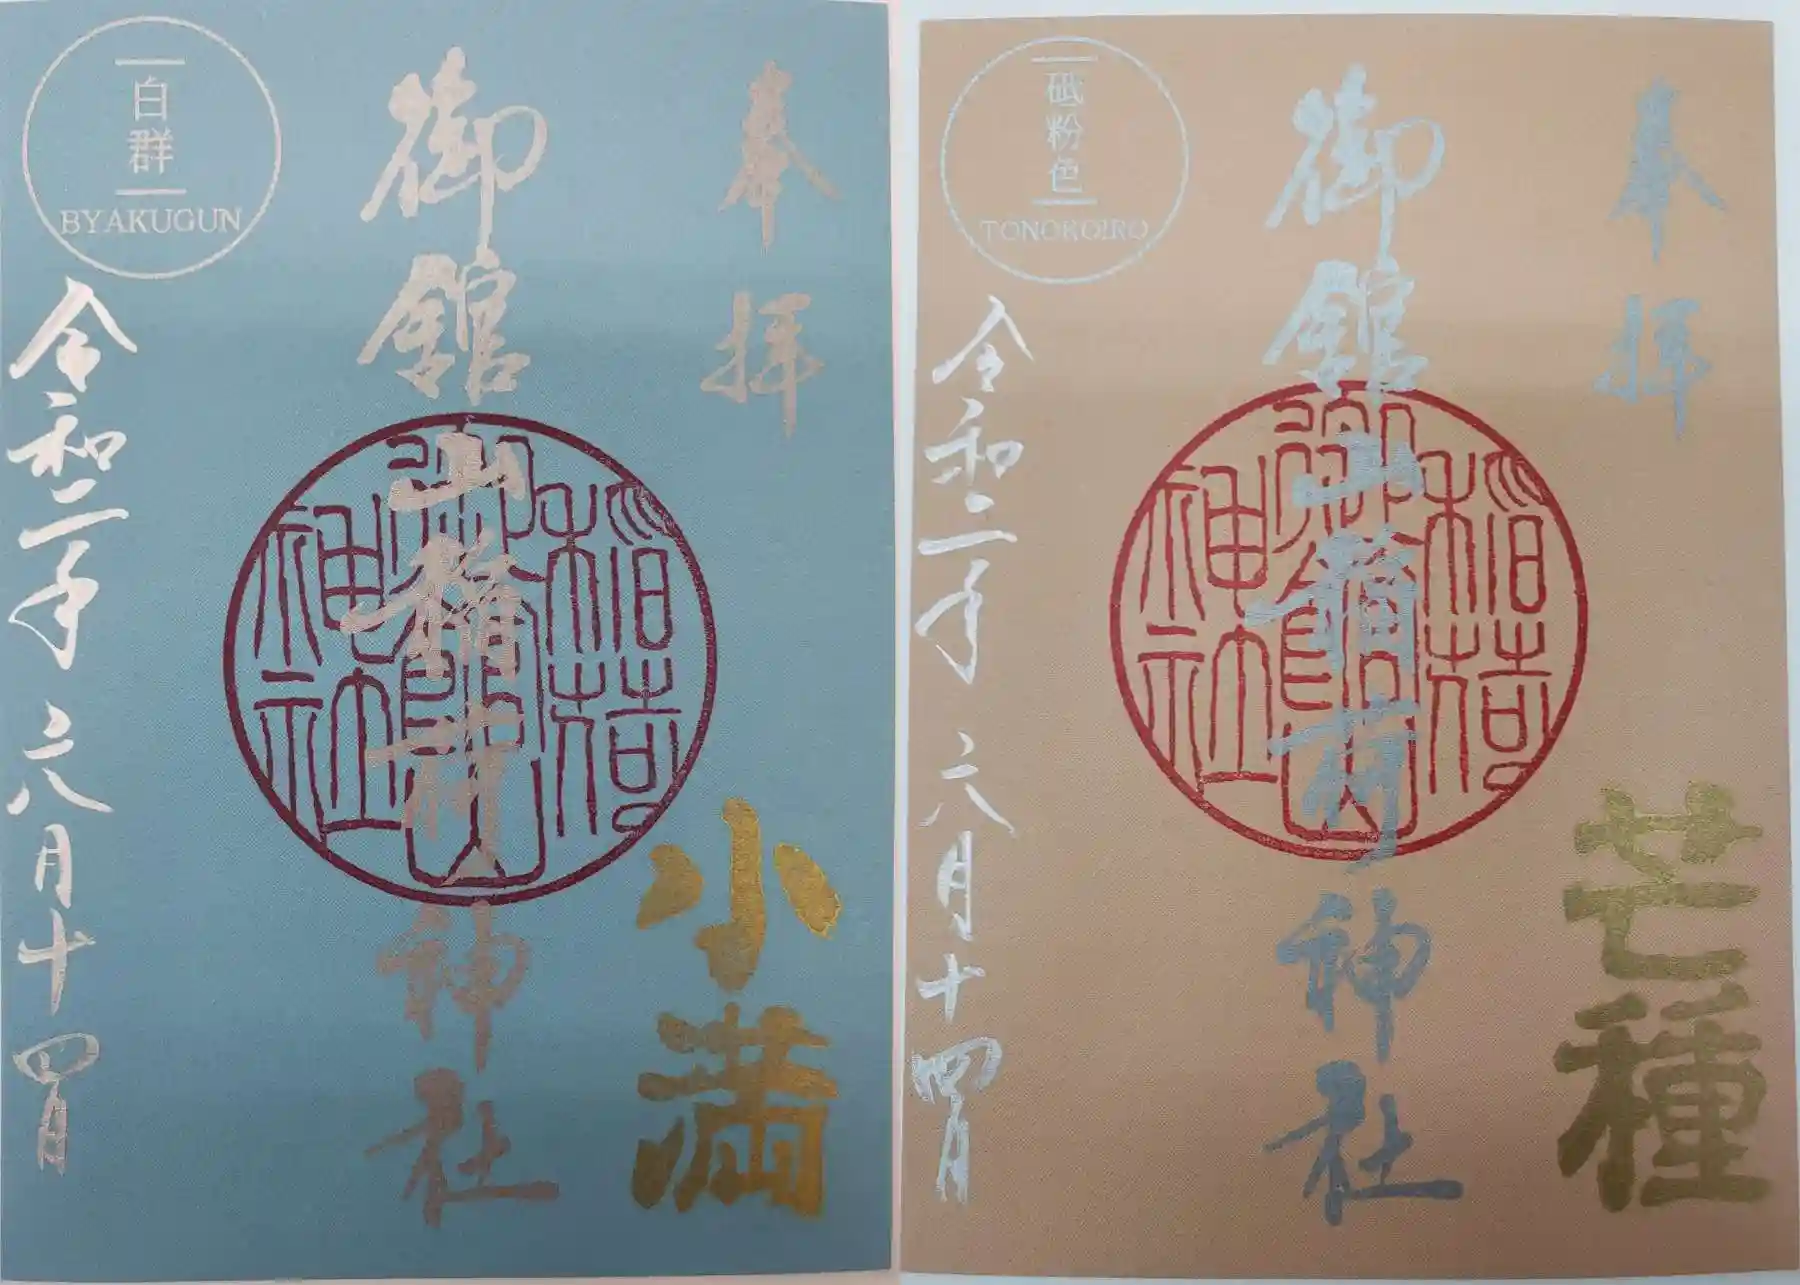 奉拝
御館山稲荷神社
稲荷
御館山
神社
小満
白群
BYAKUGUN
令和二年六月十四日
奉拝
御館山稲荷神社
稲荷
御館山
神社
芒種
砥粉色
TONOKOIRO
令和二年六月十四日